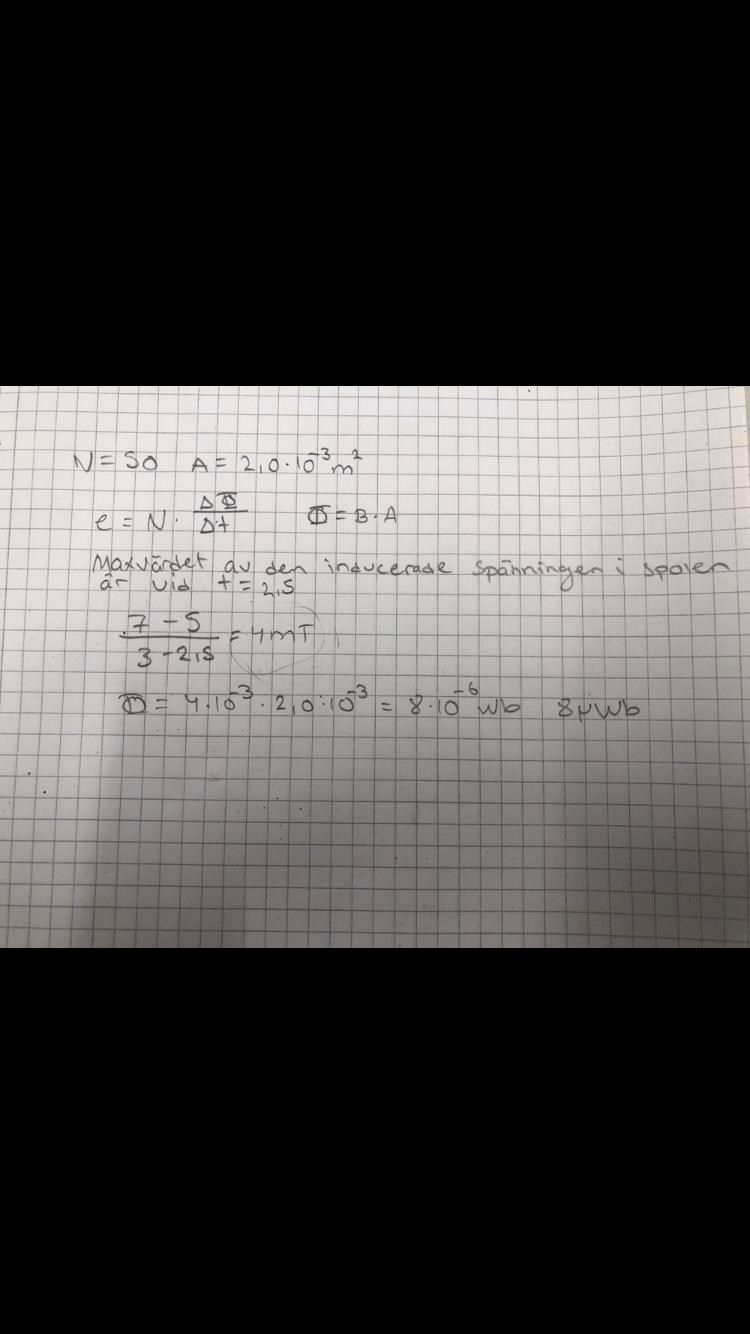 N = 50 A = 2,0·10⁻³ m²
e = N · ΔΦ/Δt Φ = B·A
Maxvärdet av den inducerade spänningen i spolen
är vid t = 2,5
7 - 5 / 3 - 2,5 = 4mT
Φ = 4·10⁻³ · 2,0·10⁻³ = 8·10⁻⁶ Wb 8μWb